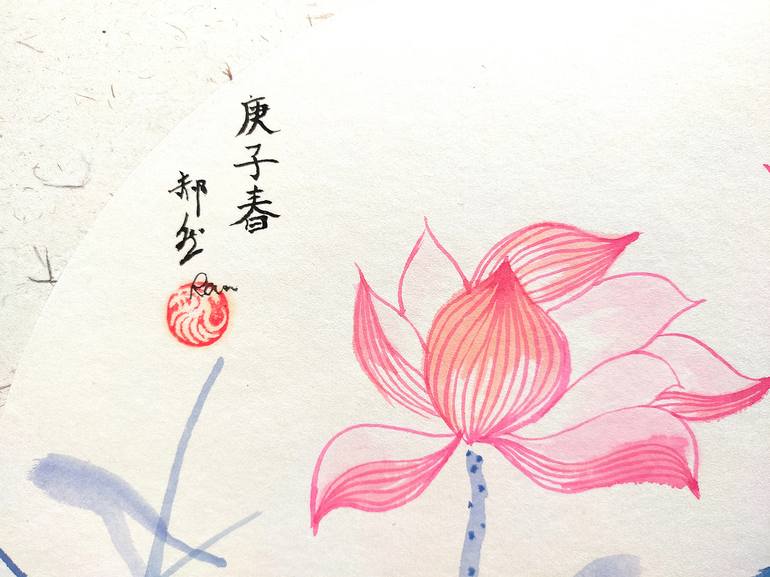 庚子春
郝然
Ran